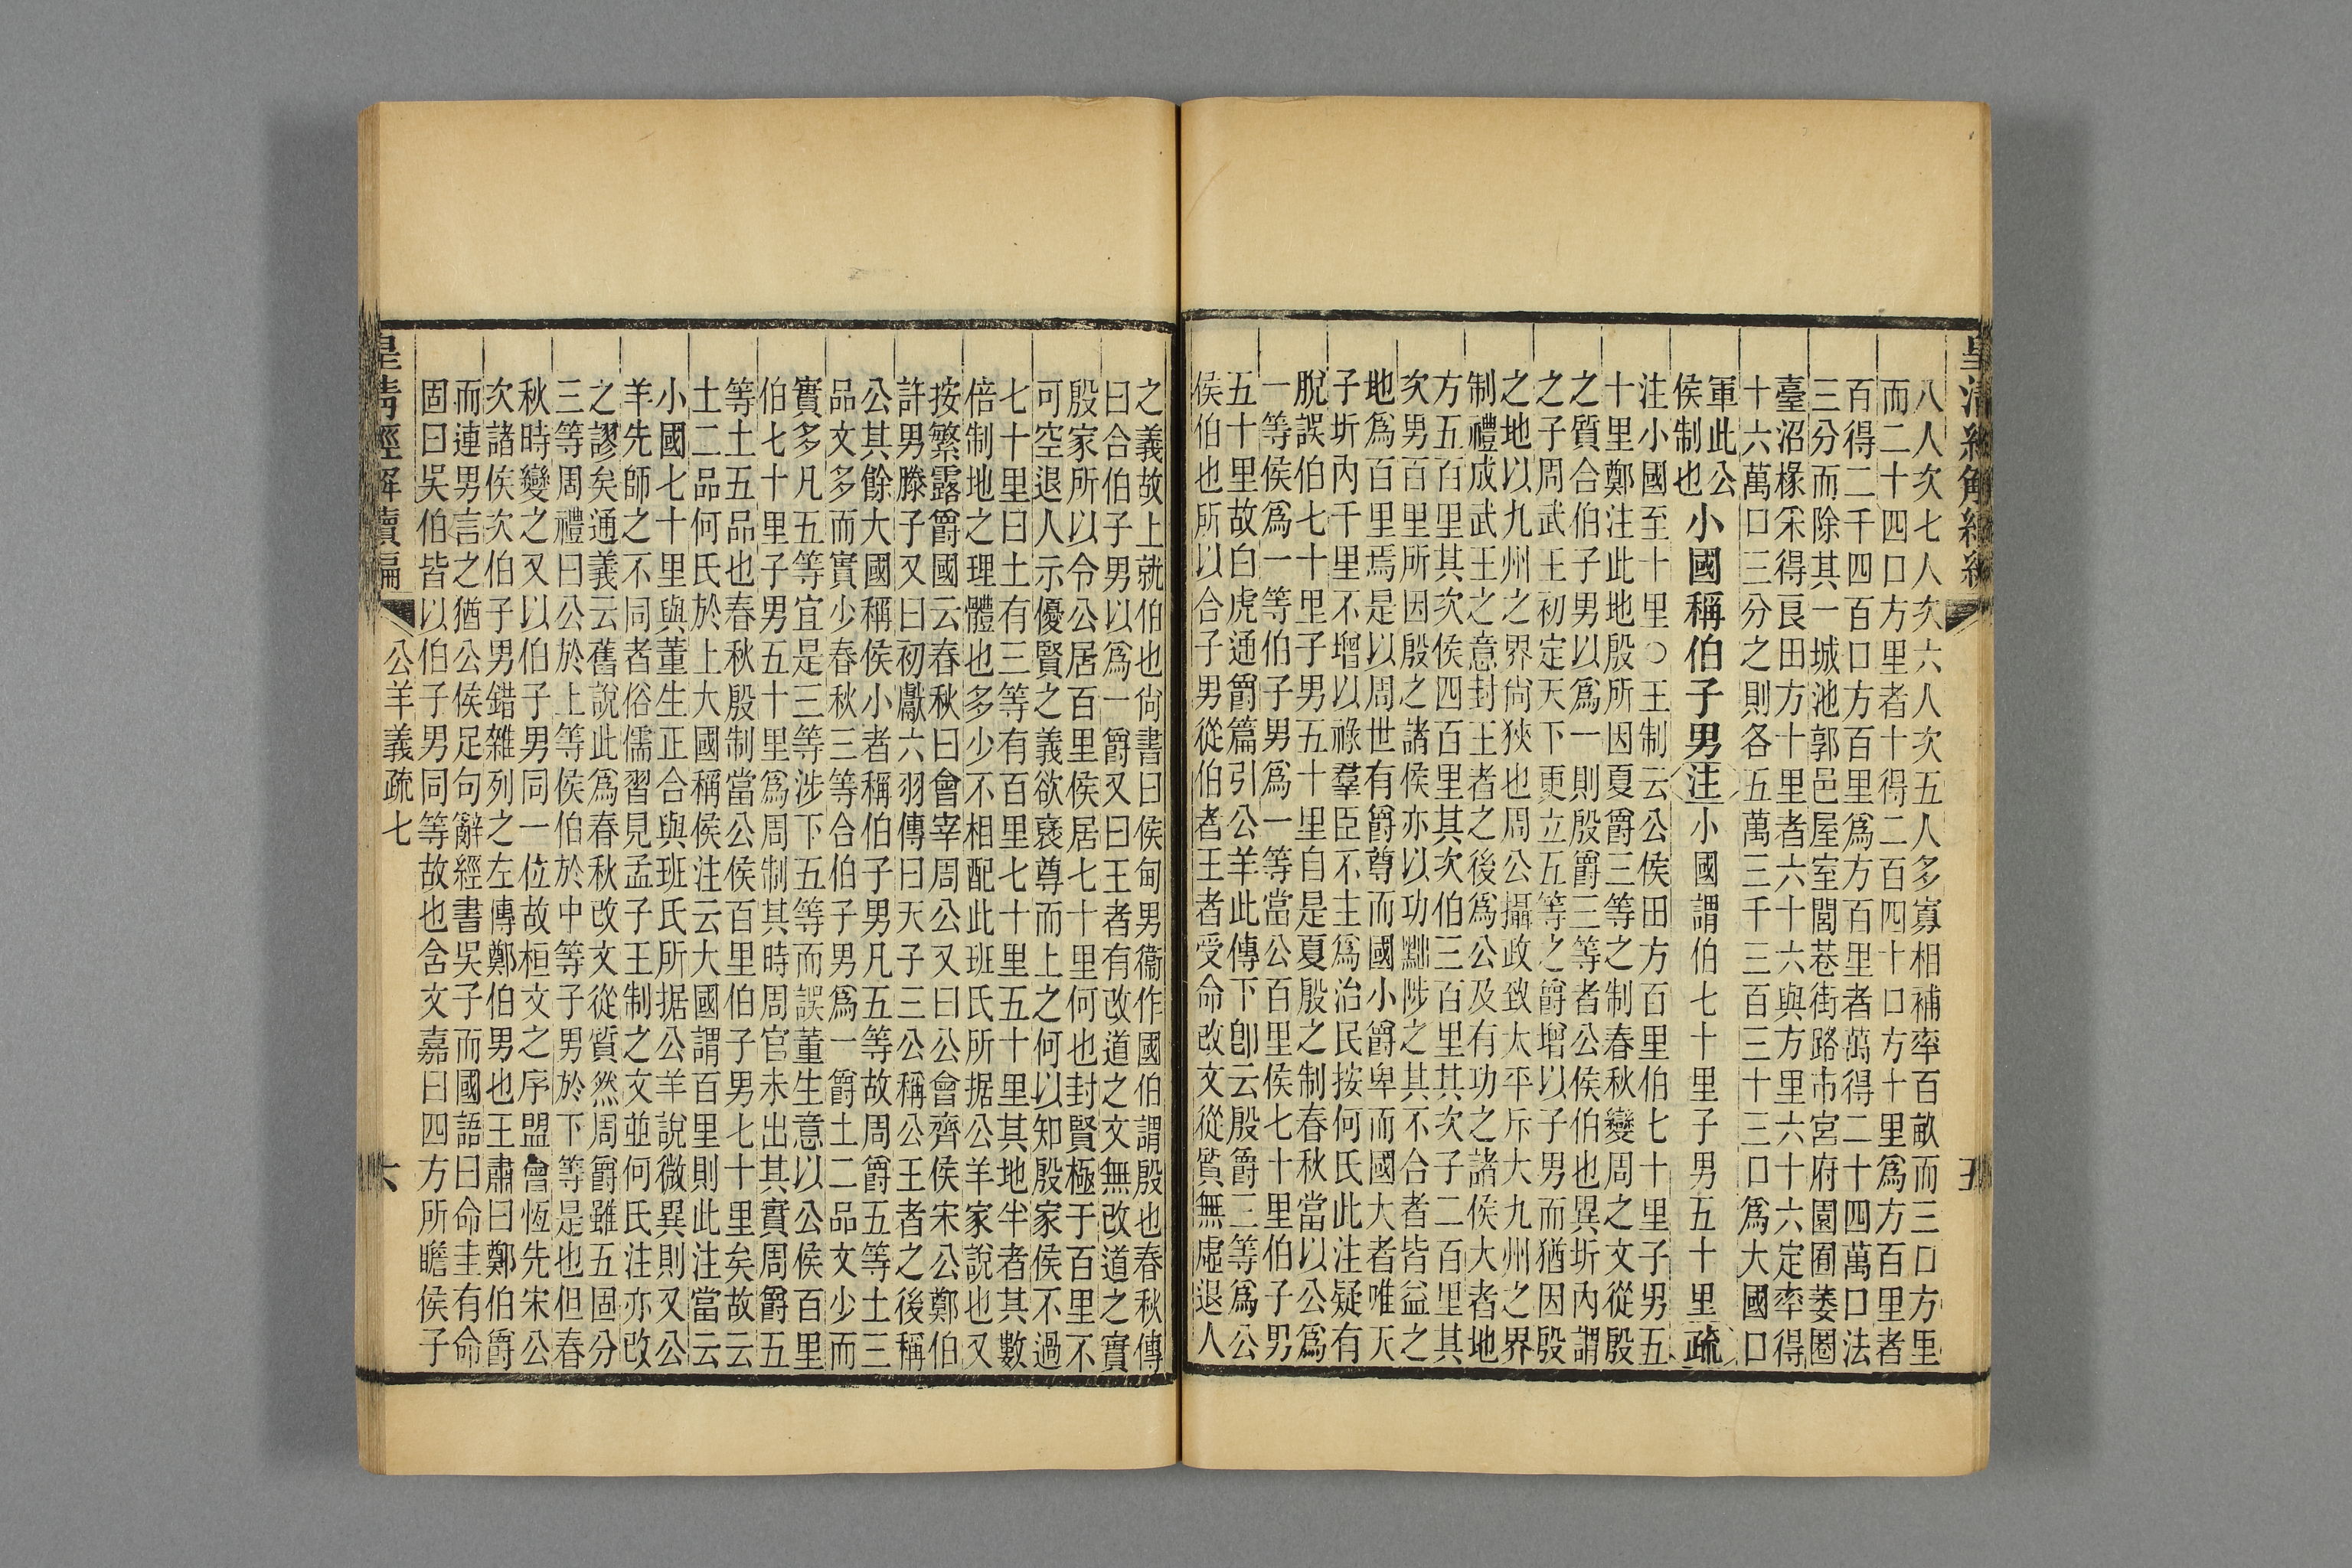 皇清經解續編
八人次七人次六人次五人多寡相補率百畝而三口方里
而二十四口方里者十得二百四十口方十里爲方百里者
百得二千四百口方百里爲方百里者萬得二十四萬口法
三分而除其一城池郭邑屋室閭巷街路市宮府園囿萎圈
臺沼椽采得良田方十里者六十六與方里六十六定率得
十六萬口三分之則各五萬三千三百三十三口爲大國口
軍此公
侯制也
小國稱伯子男注小國謂伯七十里子男五十里疏
注小國至十里○王制云公侯田方百里伯七十里子男五
十里鄭注此地殷所因夏爵三等之制春秋變周之文從殷
之質合伯子男以爲一則殷爵三等者公侯伯也異圻內謂
之子周武王初定天下更立五等之爵增以子男而猶因殷
之地以九州之界尙狹也周公攝政致太平斥大九州之界
制禮成武王之意封王者之後爲公及有功之諸侯大者地
方五百里其次侯四百里其次伯三百里其次子二百里其
次男百里所因殷之諸侯亦以功黜陟之其不合者皆益之
地爲百里焉是以周世有爵尊而國小爵卑而國大者唯天
子圻內千里不增以祿羣臣不主爲治民按何氏此注疑有
脫誤伯七十里子男五十里自是夏殷之制春秋當以公爲
一等侯爲一等伯子男爲一等當公百里侯七十里伯子男
五十里故白虎通爵篇引公羊此傳下卽云殷爵三等爲公
侯伯也所以合子男從伯者王者受命改文從質無虛退人
五
之義故上就伯也尙書曰侯甸男衞作國伯謂殷也春秋傳
曰合伯子男以爲一爵又曰王者有改道之文無改道之實
殷家所以令公居百里侯居七十里何也封賢極于百里不
可空退人示優賢之義欲襃尊而上之何以知殷家侯不過
七十里曰土有三等有百里七十里五十里其地半者其數
倍制地之理體也多少不相配此班氏所据公羊家說也又
按繁露爵國云春秋曰會宰周公又曰公會齊侯宋公鄭伯
許男滕子又曰初獻六羽傳曰天子三公稱公王者之後稱
公其餘大國稱侯小者稱伯子男凡五等故周爵五等士三
品文多而實少春秋三等合伯子男爲一爵士二品文少而
實多凡五等宜是三等涉下五等而誤董生意以公侯百里
伯七十里子男五十里爲周制其時周官未出其實周爵五
等士五品也春秋殷制當公侯百里伯子男七十里矣故云
士二品何氏於上大國稱侯注云大國謂百里則此注當云
小國七十里與董生正合與班氏所据公羊說微異則又公
羊先師之不同者俗儒習見孟子王制之文並何氏注亦改
之謬矣通義云舊說此爲春秋改文從質然周爵雖五固分
三等周禮曰公於上等侯伯於中等子男於下等是也但春
秋時變之又以伯子男同一位故桓文之序盟會恆先宋公
次諸侯次伯子男錯雜列之左傳鄭伯男也王肅曰鄭伯爵
而連男言之猶公侯足句辭經書吳子而國語曰命圭有命
固曰吳伯皆以伯子男同等故也舍文嘉曰四方所瞻侯子
皇清經解續編
公羊義疏七
六